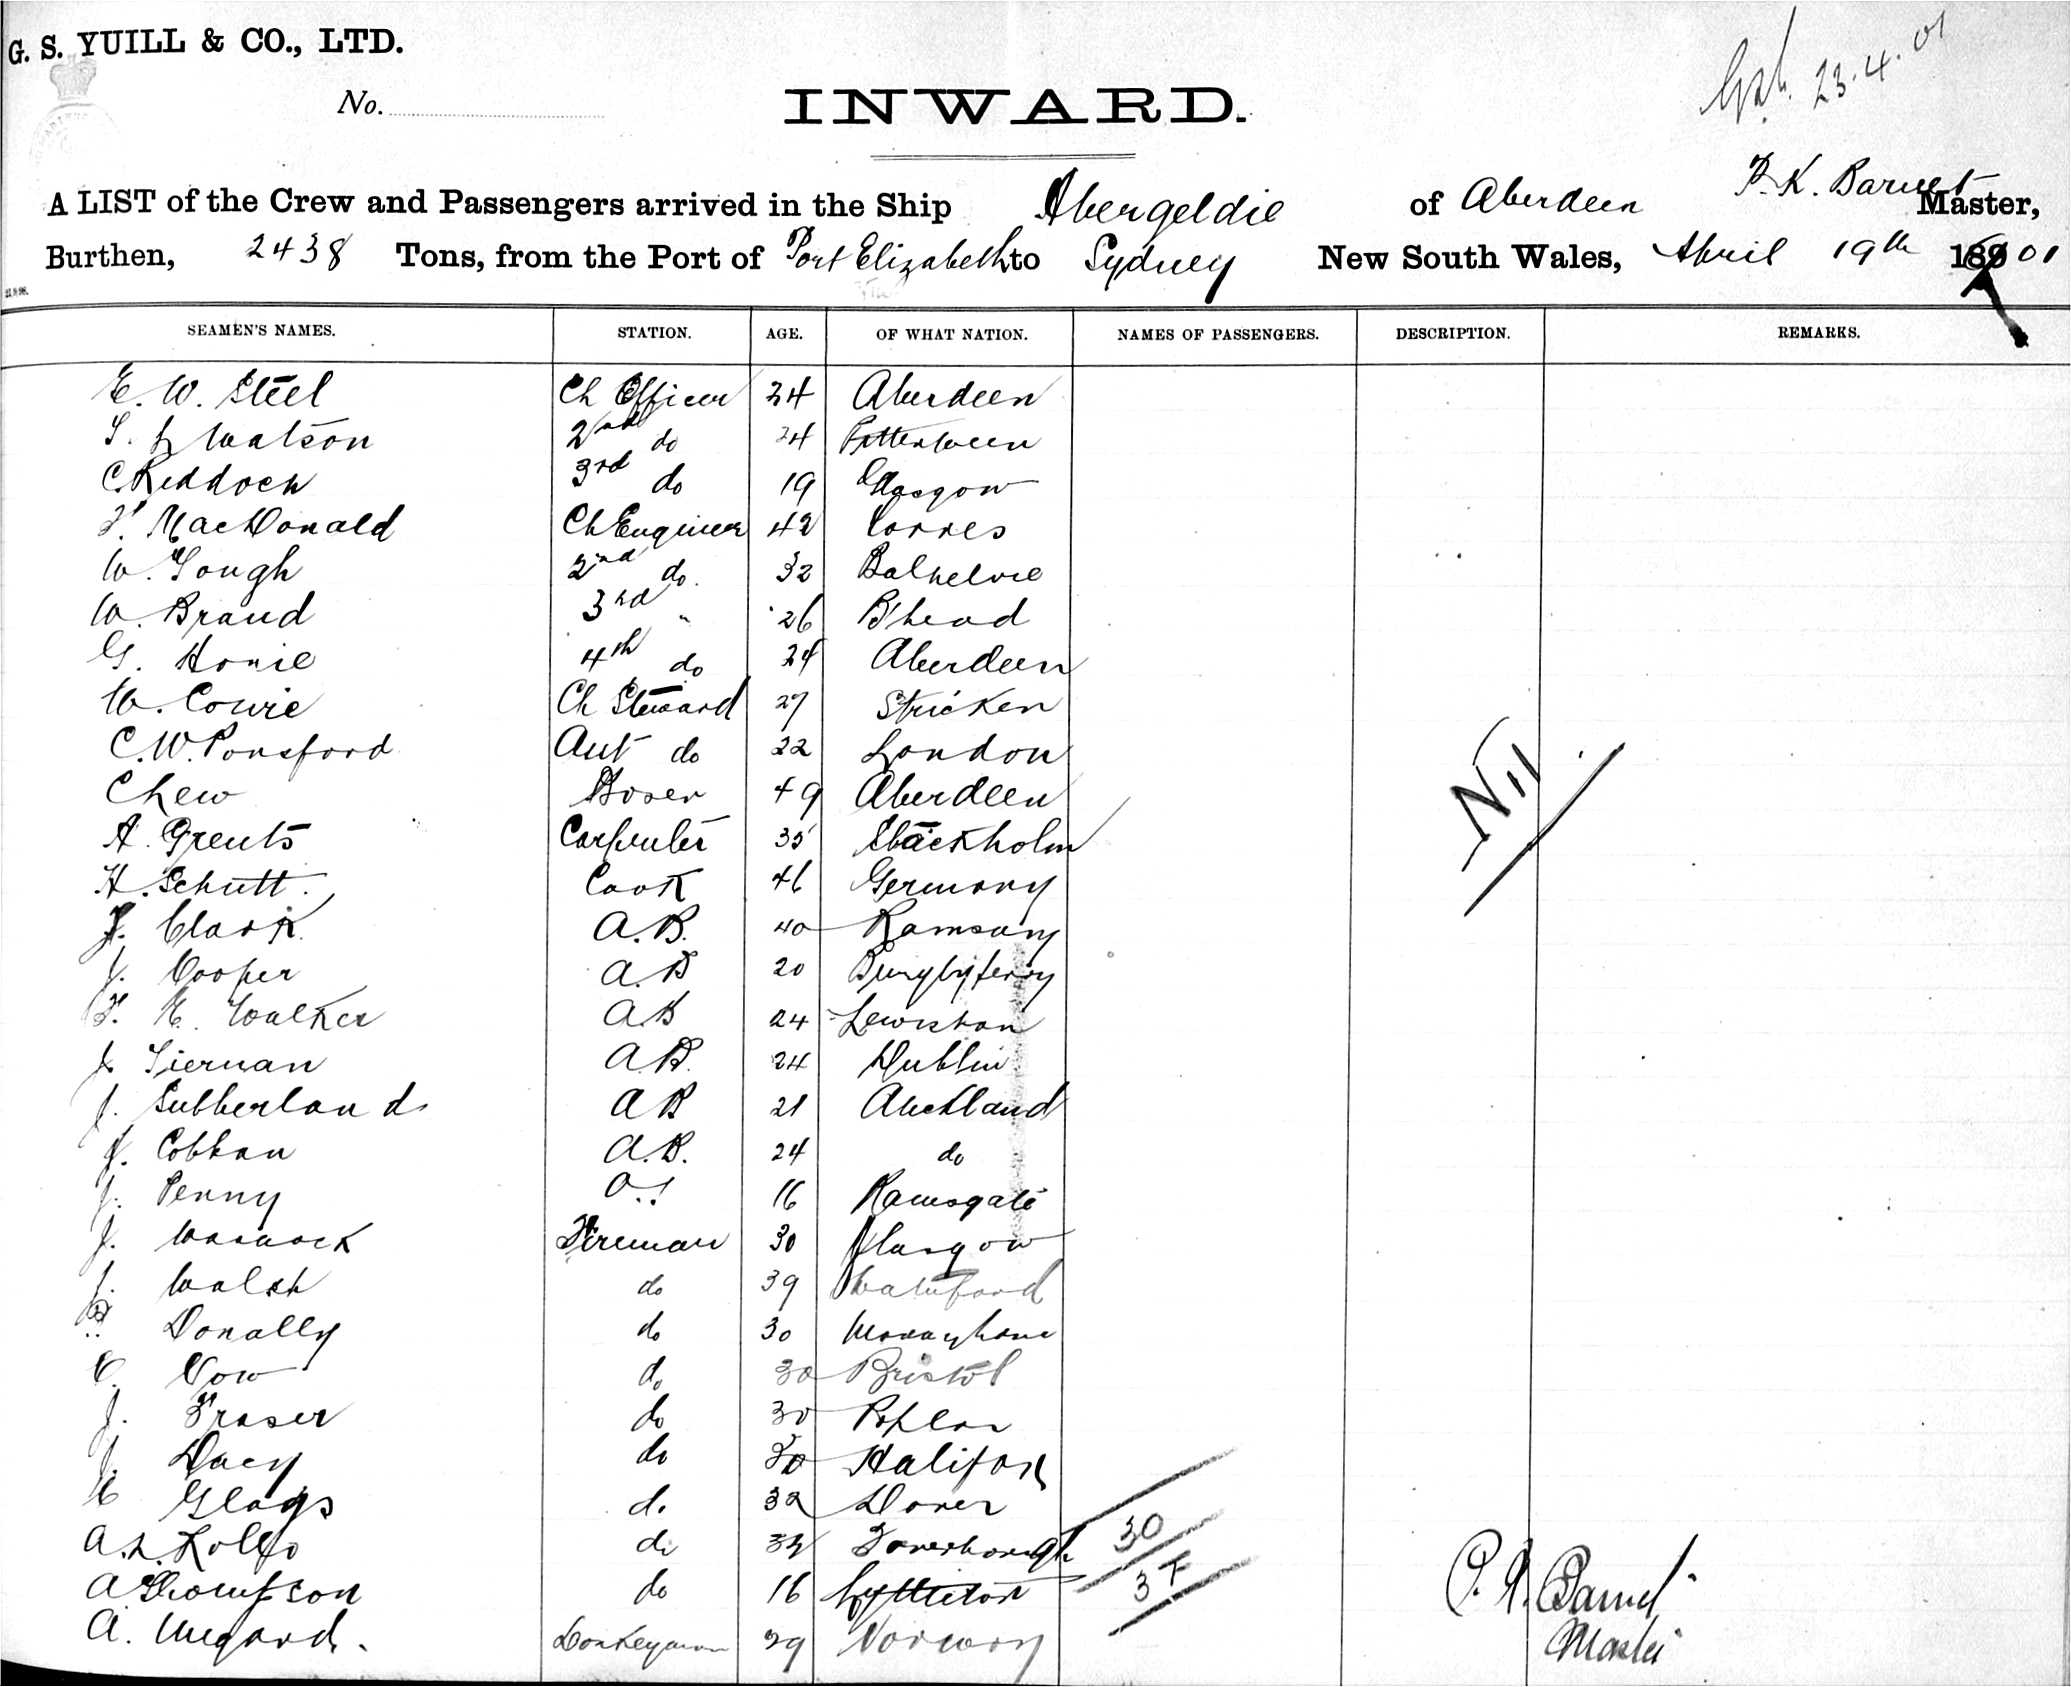 G. S. YUILL & CO., LTD.
23.4.01
No.
INWARD.
P. K. Barnet
A LIST of the Crew and Passengers arrived in the Ship Abergeldie of Aberdeen Master,
Burthen, 2438 Tons, from the Port of Port Elizabeth to Sydney New South Wales, April 19th 1901
SEAMEN'S NAMES. STATION. AGE. OF WHAT NATION. NAMES OF PASSENGERS. DESCRIPTION. REMARKS.
E. W. Steel Ch Officer 24 Aberdeen
Watson 2nd do 24
C. Reddoch 3rd do 19 Glasgow
F. MacDonald Ch Engineer 42 Forres
W. Gough 2nd do. 32 Balhelvie
W. Brand 3rd " 26 B'head
G. Howie 4th do 24 Aberdeen
W. Cowie Ch Steward 27 Stricken
C. W. Ponsford do 22 London
Chew Bosen 49 Aberdeen
A. Grents Carpenter 35 Stockholm
H. Schutt. Cook 46 Germany
J. Clark A.B. 40 Ramsay
J. Cooper A.B 20
F. H. Walker A.B 24 Lewiston
J. Tiernan A.B. 24 Dublin
J. Sutherland AB 21 Auckland
J. Cobban A.B. 24 do
J. Penny O.S 16 Ramsgate
J. Warnock Fireman 30 Glasgow
J. Walsh do 39 Waterford
P. Donally do 30 Monaghan
C. Vow do 30 Bristol
J. Fraser do 30 Poplar
J. Dacy do 30 Halifax
C Glags do 32 Dover
A. L. Rollo do 32
A Thompson do 16 Lyttleton
A. Ungard. Donkeyman 29 Norway
Nil
30
37
P. K. Barnet
Master